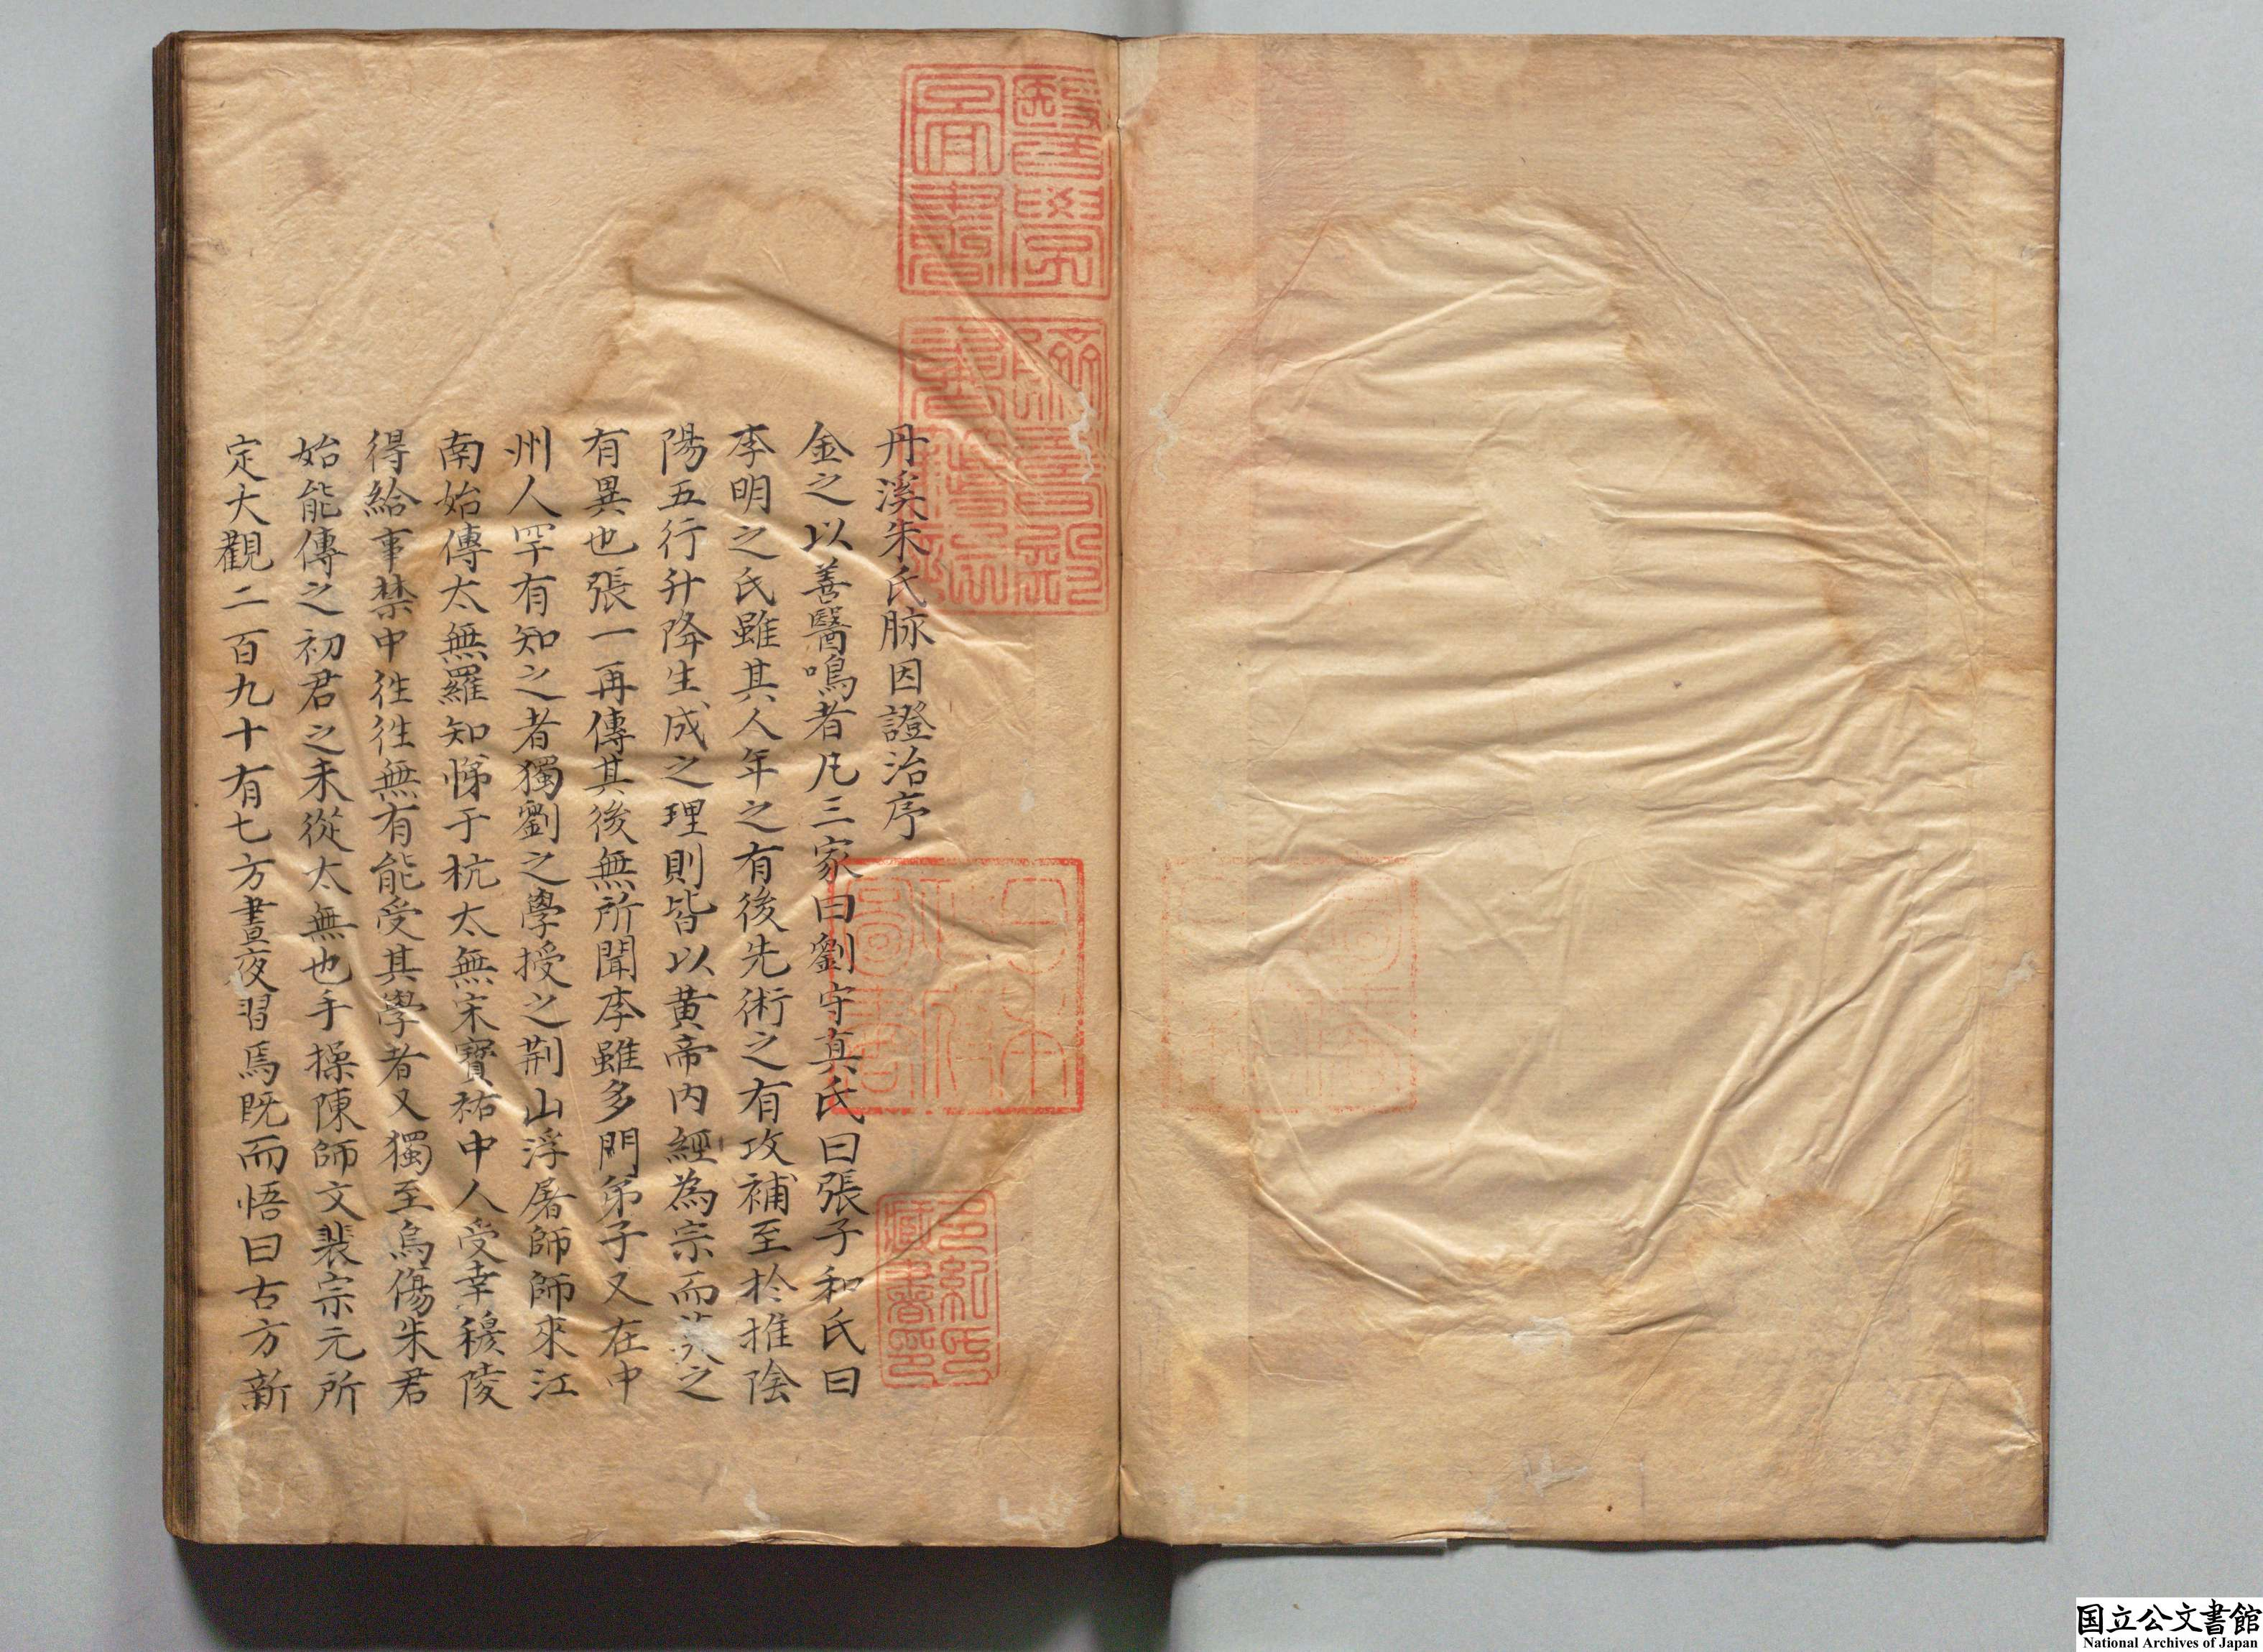 丹溪朱氏脉因證治序
金之以善醫鳴者凡三家曰劉守真氏曰張子和氏曰
李明之氏雖其人年之有後先術之有攻補至於推陰
陽五行升降生成之理則皆以黃帝內經為宗而莫之
有異也張一再傳其後無所聞李雖多門弟子又在中
州人罕有知之者獨劉之學授之荆山浮屠師師來江
南始傳太無羅知悌于杭太無宋寶祐中人受幸穆陵
得給事禁中徃徃無有能受其學者又獨至烏傷朱君
始能傳之初君之未從太無也手操陳師文裴宗元所
定大觀二百九十有七方晝夜習焉既而悟曰古方新
醫學圖書
躋壽殿書籍記
日本政府圖書
多紀氏藏書印
国立公文書館
National Archives of Japan